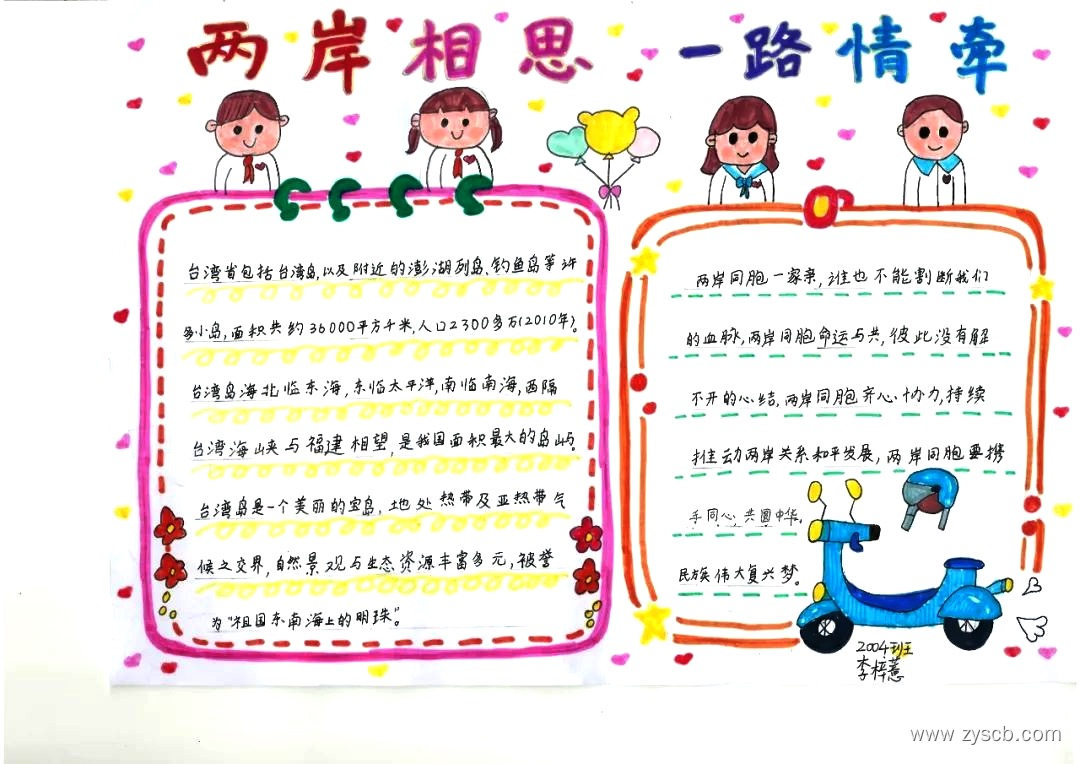 两岸相思 一路情牵
台湾省包括台湾岛,以及附近的澎湖列岛、钓鱼岛等许
多小岛,面积共约36000平方千米,人口2300多万(2010年)。
台湾岛海北临东海,东临太平洋,南临南海,西隔
台湾海峡与福建相望,是我国面积最大的岛屿。
台湾岛是一个美丽的宝岛,地处热带及亚热带气
候之交界,自然景观与生态资源丰富多元,被誉
为“祖国东南海上的明珠”。
两岸同胞一家亲,谁也不能割断我们
的血脉,两岸同胞命运与共,彼此没有解
不开的心结,两岸同胞齐心协力,持续
推动两岸关系和平发展,两岸同胞要携
手同心,共圆中华
民族伟大复兴梦。
2004班
李梓薏
www.zyscb.com